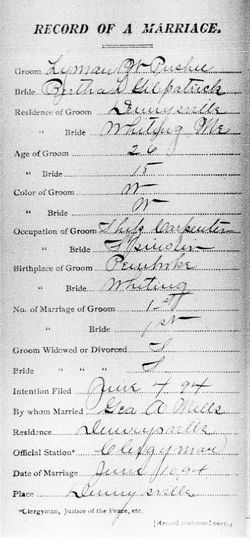 RECORD OF A MARRIAGE.
Groom Lyman W Pushee
Bride Bertha L Gilpatrick
Residence of Groom Dennysville
" Bride Whiting Me
Age of Groom 26
" Bride 15
Color of Groom W
" Bride W
Occupation of Groom Ship Carpenter
" Bride
Birthplace of Groom Pembroke
" Bride Whiting
No. of Marriage of Groom 1st
" Bride 1st
Groom Widowed or Divorced
Bride " " "
Intention Filed June 4 94
By whom Married Geo A Mills
Residence Dennysville
Official Station* Clergyman
Date of Marriage June 10 94
Place Dennysville
*Clergyman, Justice of the Peace, etc.
[Record continued over.]